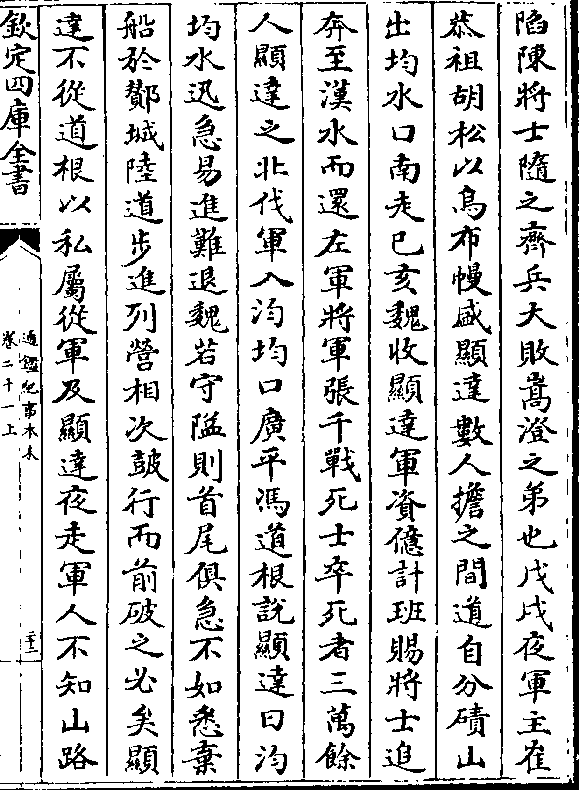 陷陳將士隨之齊兵大敗嵩澄之弟也戊戌夜軍主崔
恭祖胡松以烏布幔盛顯達數人擔之間道自分磧山
出均水口南走己亥魏收顯達軍資億計班賜將士追
奔至漢水而還左軍將軍張千戰死士卒死者三萬餘
人顯達之北伐軍入汮均口廣平馮道根説顯達曰汮
均水迅急易進難退魏若守隘則首尾俱急不如悉棄
船於酇城陸道步進列營相次鼓行而前破之必矣顯
達不從道根以私屬從軍及顯達夜走軍人不知山路
欽定四庫全書
通鑑紀事本末
卷二十一上
三十二